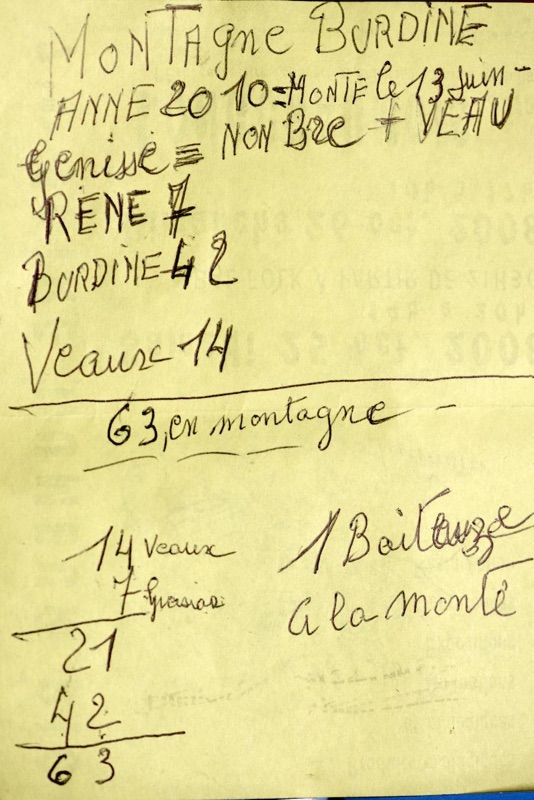 MONTAgne BURDINE
ANNE 2010=MONTE le 13 Juin-
Genisse = NON BRE + VEAU
RENE 7
BURDINE 42
Veaux 14
63, en montagne -
14 Veaux
7
21
42
63
1 Boiteuze
a la monté